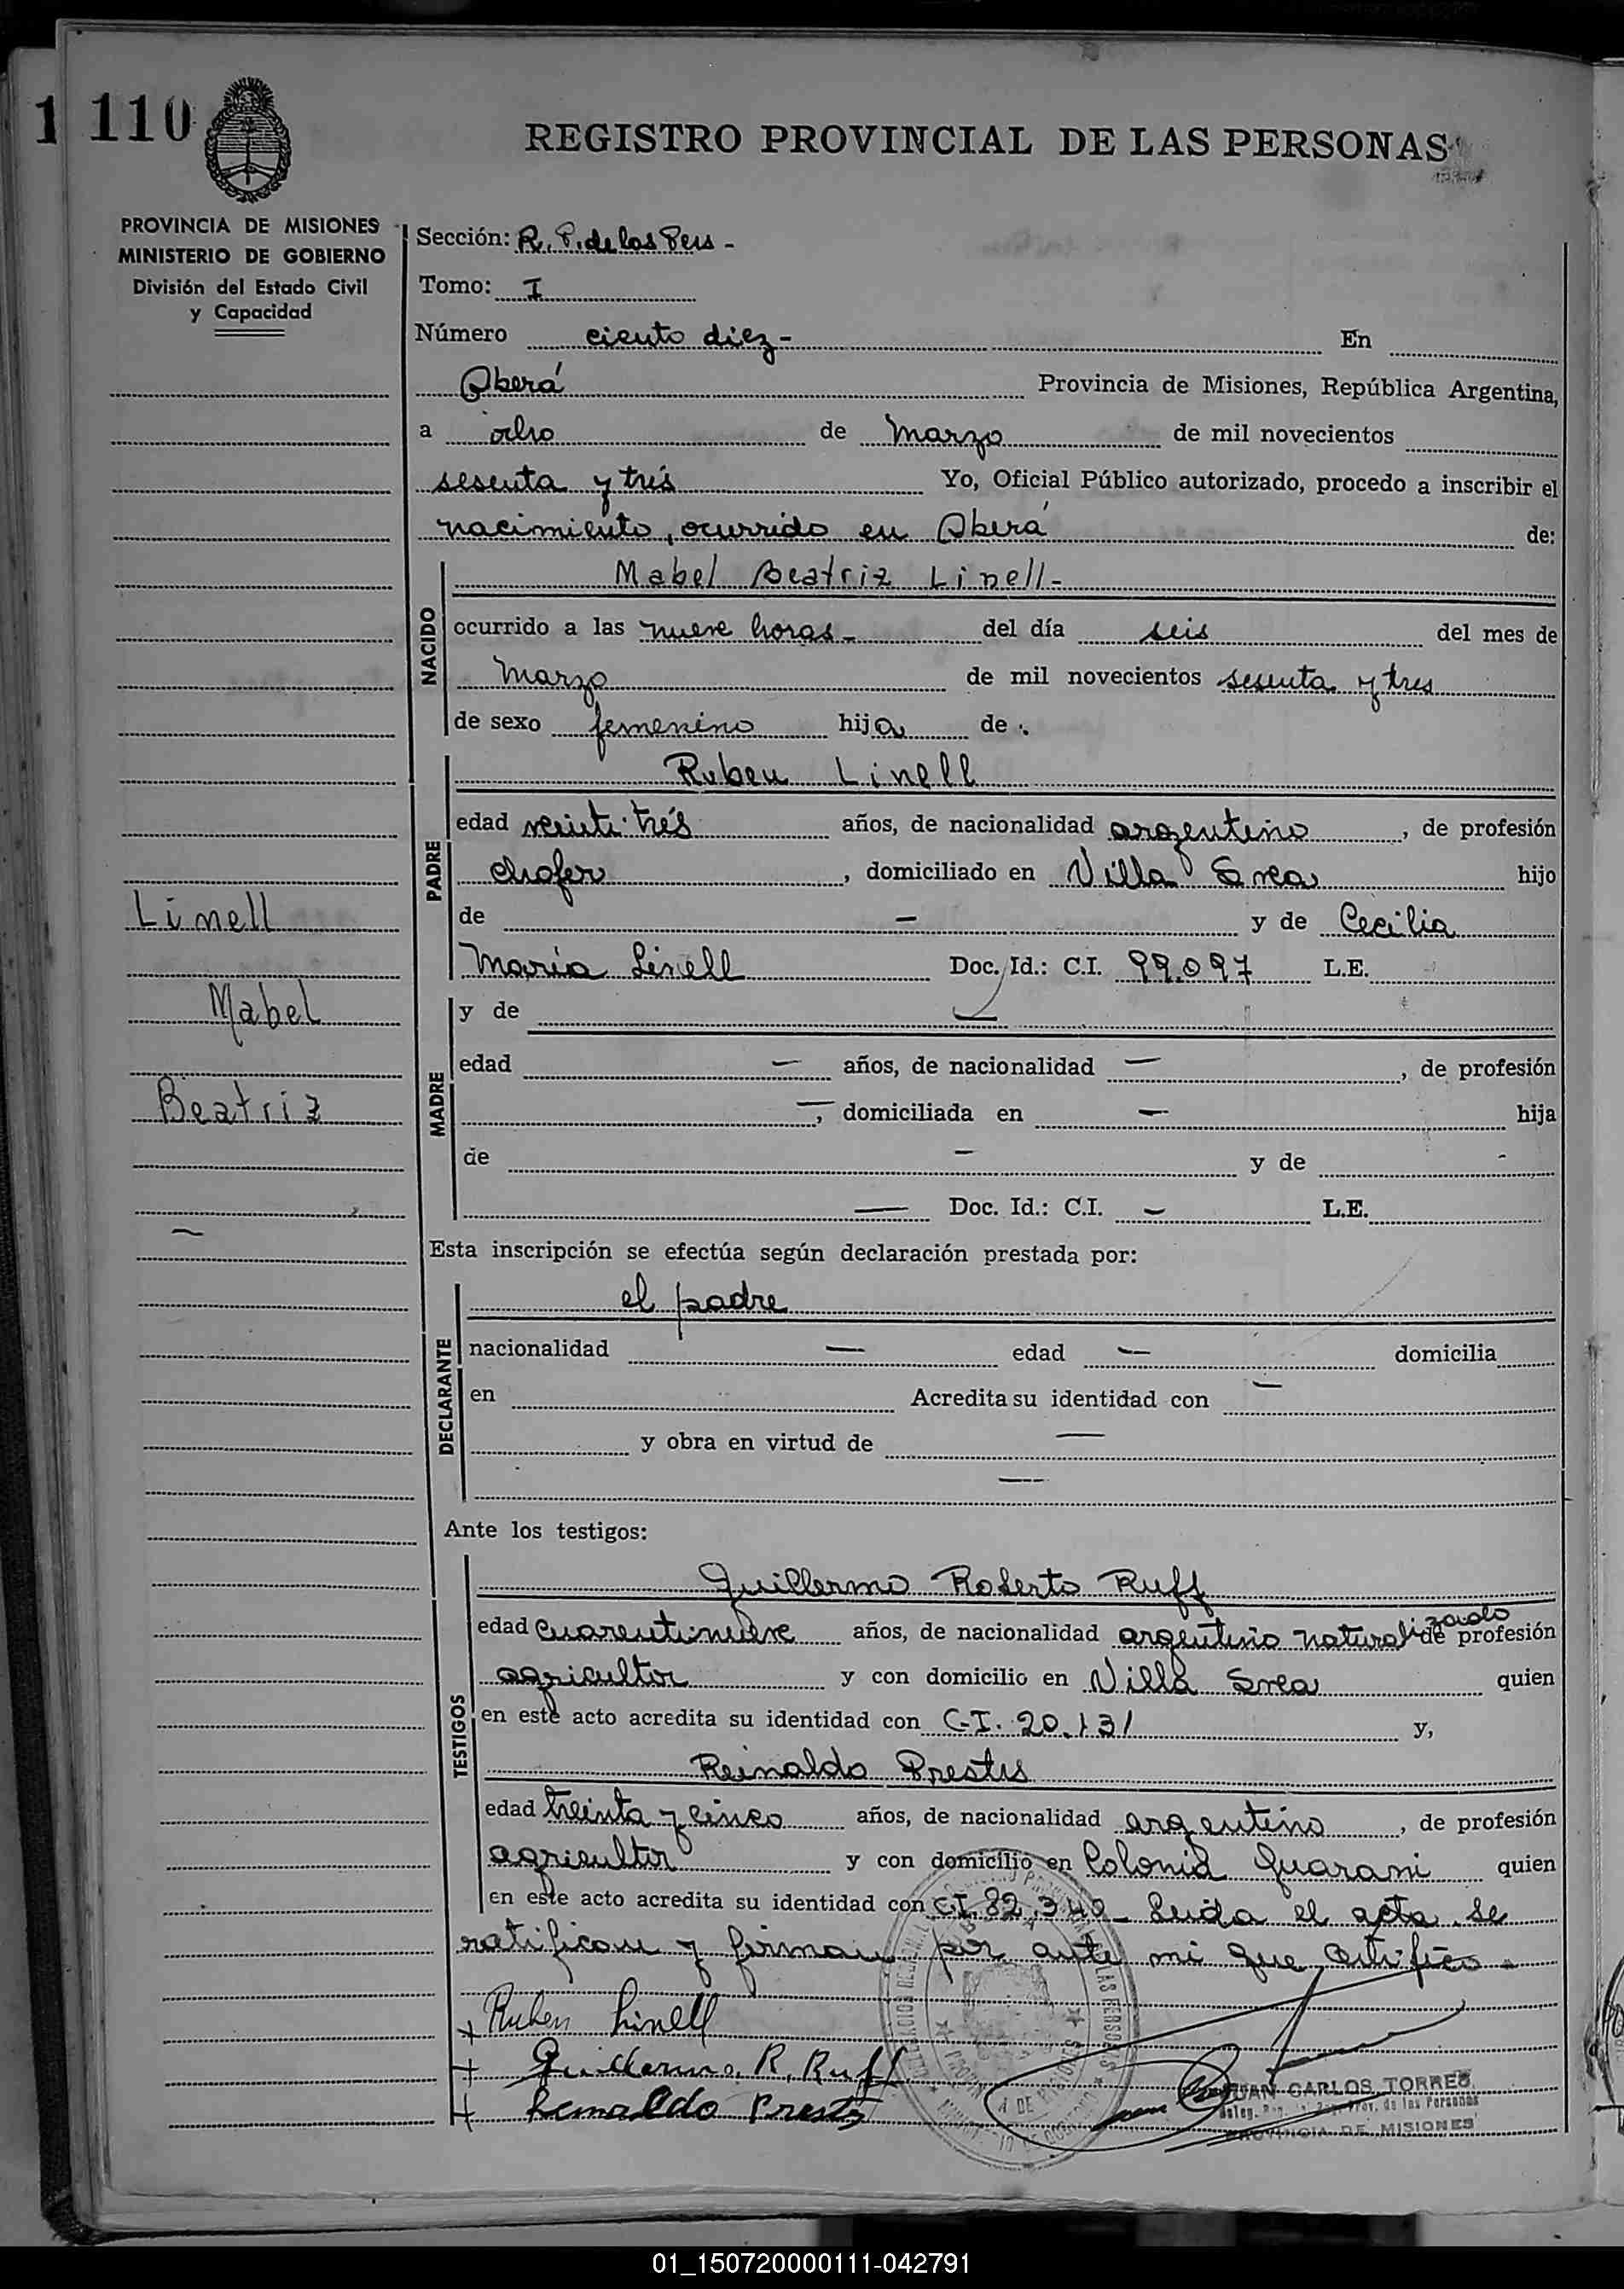 1 110
REGISTRO PROVINCIAL DE LAS PERSONAS
PROVINCIA DE MISIONES
MINISTERIO DE GOBIERNO
División del Estado Civil
y Capacidad
Linell
Mabel
Beatriz
Sección: R. P. de las Pers -
Tomo: I
Número ciento diez - En
Oberá Provincia de Misiones, República Argentina,
a ocho de Marzo de mil novecientos
sesenta y trés Yo, Oficial Público autorizado, procedo a inscribir el
nacimiento, ocurrido en Oberá de:
NACIDO
Mabel Beatriz Linell -
ocurrido a las nueve horas - del día seis del mes de
Marzo de mil novecientos sesenta y tres
de sexo femenino hija de
PADRE
Ruben Linell
edad veintitrés años, de nacionalidad argentino, de profesión
chofer, domiciliado en Villa Svea hijo
de — y de Cecilia
María Linell Doc. Id.: C.I. 99.097 L.E.
MADRE
y de —
edad — años, de nacionalidad —, de profesión
—, domiciliada en — hija
de — y de -
— Doc. Id.: C.I. — L.E.
Esta inscripción se efectúa según declaración prestada por:
DECLARANTE
el padre
nacionalidad — edad — domicilia
en Acredita su identidad con —
y obra en virtud de —
—
Ante los testigos:
TESTIGOS
Guillermo Roberto Ruff
edad cuarentinueve años, de nacionalidad argentino naturalizado de profesión
agricultor y con domicilio en Villa Svea quien
en este acto acredita su identidad con C.I. 20.131 y,
Reinaldo Prestes
edad treinta y cinco años, de nacionalidad argentino, de profesión
agricultor y con domicilio en Colonia Guarani quien
en este acto acredita su identidad con C.I. 82.340 - Leida el acta se
ratifican y firman por ante mi que certifico -
+ Ruben Linell
+ Guillermo. R. Ruff
+ Reinaldo Prestes
JUAN CARLOS TORRES
Prov. de las Personas
PROVINCIA DE MISIONES
01_150720000111-042791